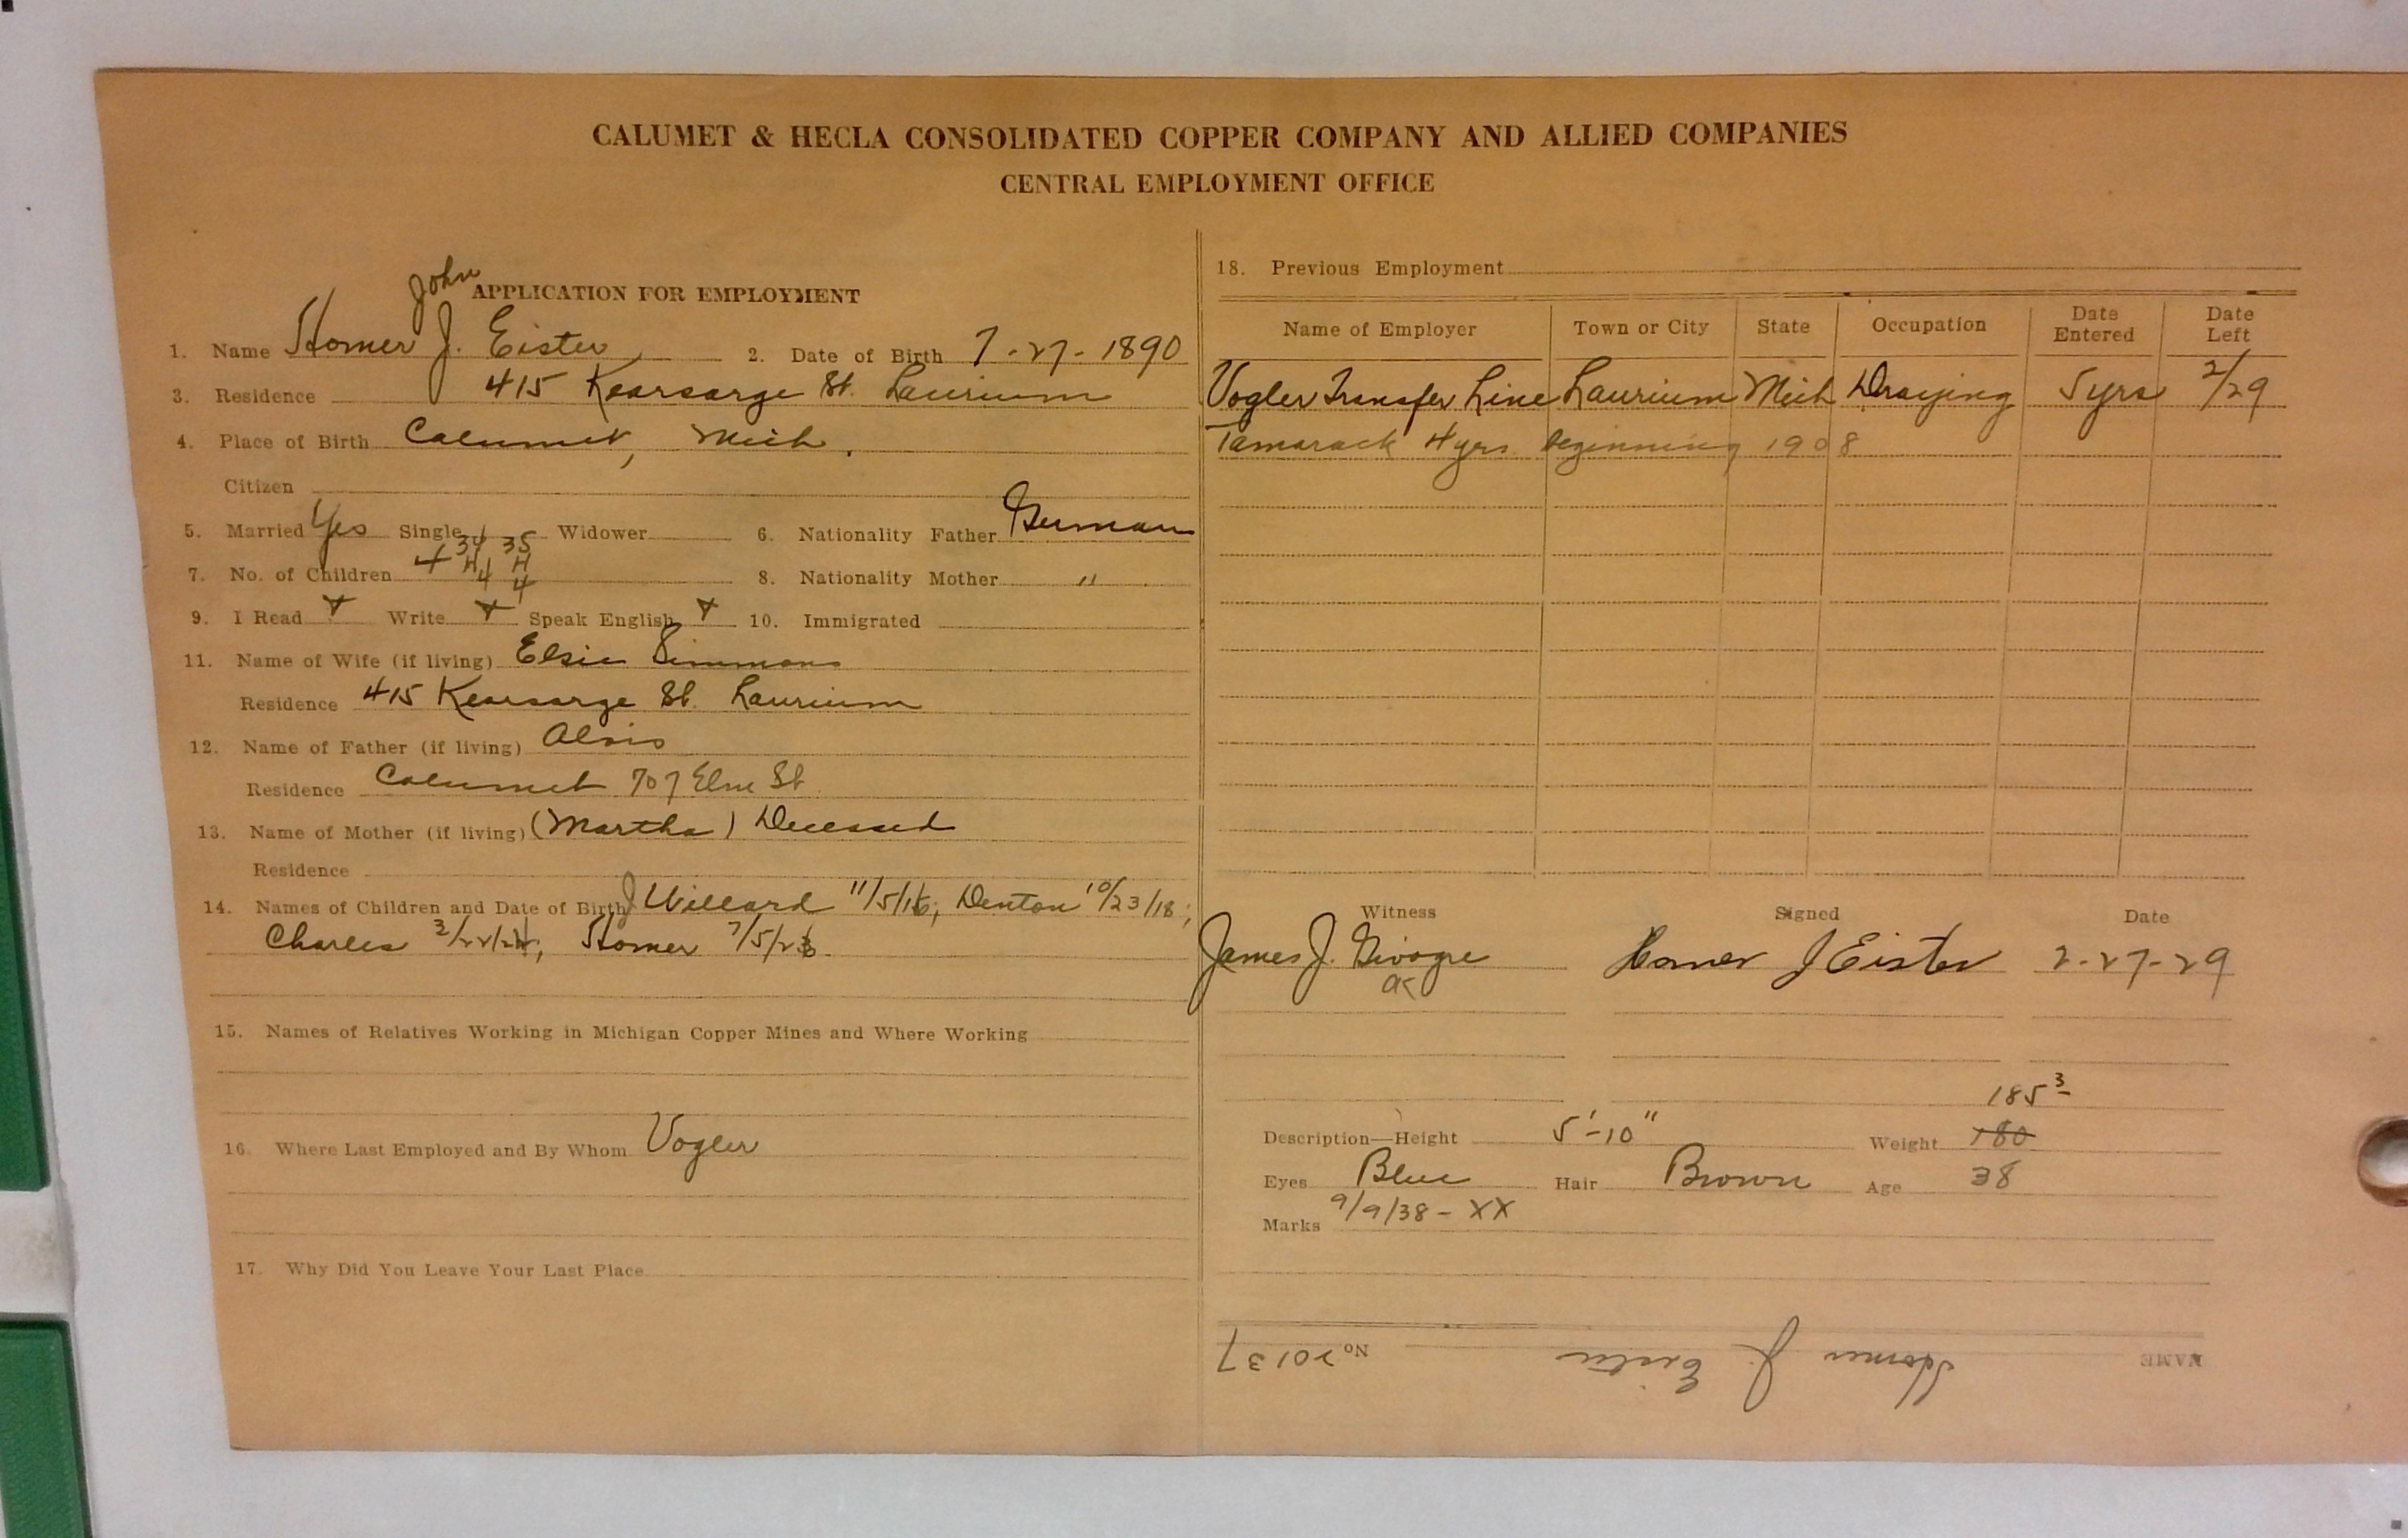 CALUMET & HECLA CONSOLIDATED COPPER COMPANY AND ALLIED COMPANIES
CENTRAL EMPLOYMENT OFFICE
John
APPLICATION FOR EMPLOYMENT
1. Name Homer J. Eister 2. Date of Birth 7-27-1890
3. Residence 415 Kearsarge St. Laurium
4. Place of Birth Calumet, Mich.
Citizen
5. Married Yes Single Widower 6. Nationality Father German
34 35
7. No. of Children 4 H4 H4 8. Nationality Mother "
9. I Read + Write + Speak English + 10. Immigrated
11. Name of Wife (if living) Elsie Simmons
Residence 415 Kearsarge St. Laurium
12. Name of Father (if living) Alois
Residence Calumet 707 Elm St
13. Name of Mother (if living) (Martha) Decessed
Residence
14. Names of Children and Date of Birth J Willard 11/5/16; Denton 10/23/18;
Charles 3/22/24; Homer 7/5/26
15. Names of Relatives Working in Michigan Copper Mines and Where Working
16. Where Last Employed and By Whom Vogler
17. Why Did You Leave Your Last Place
18. Previous Employment
Name of Employer Town or City State Occupation Date Entered Date Left
Vogler Transfer Line Laurium Mich Draying 5 yrs 2/29
Tamarack 4 yrs. beginning 1908
Witness Signed Date
James J. Homer J Eister 2-27-29
OK
185 3
Description—Height 5'-10" Weight 180
Eyes Blue Hair Brown Age 38
Marks 9/9/38 - XX
NAME Homer J. Eister No 20137